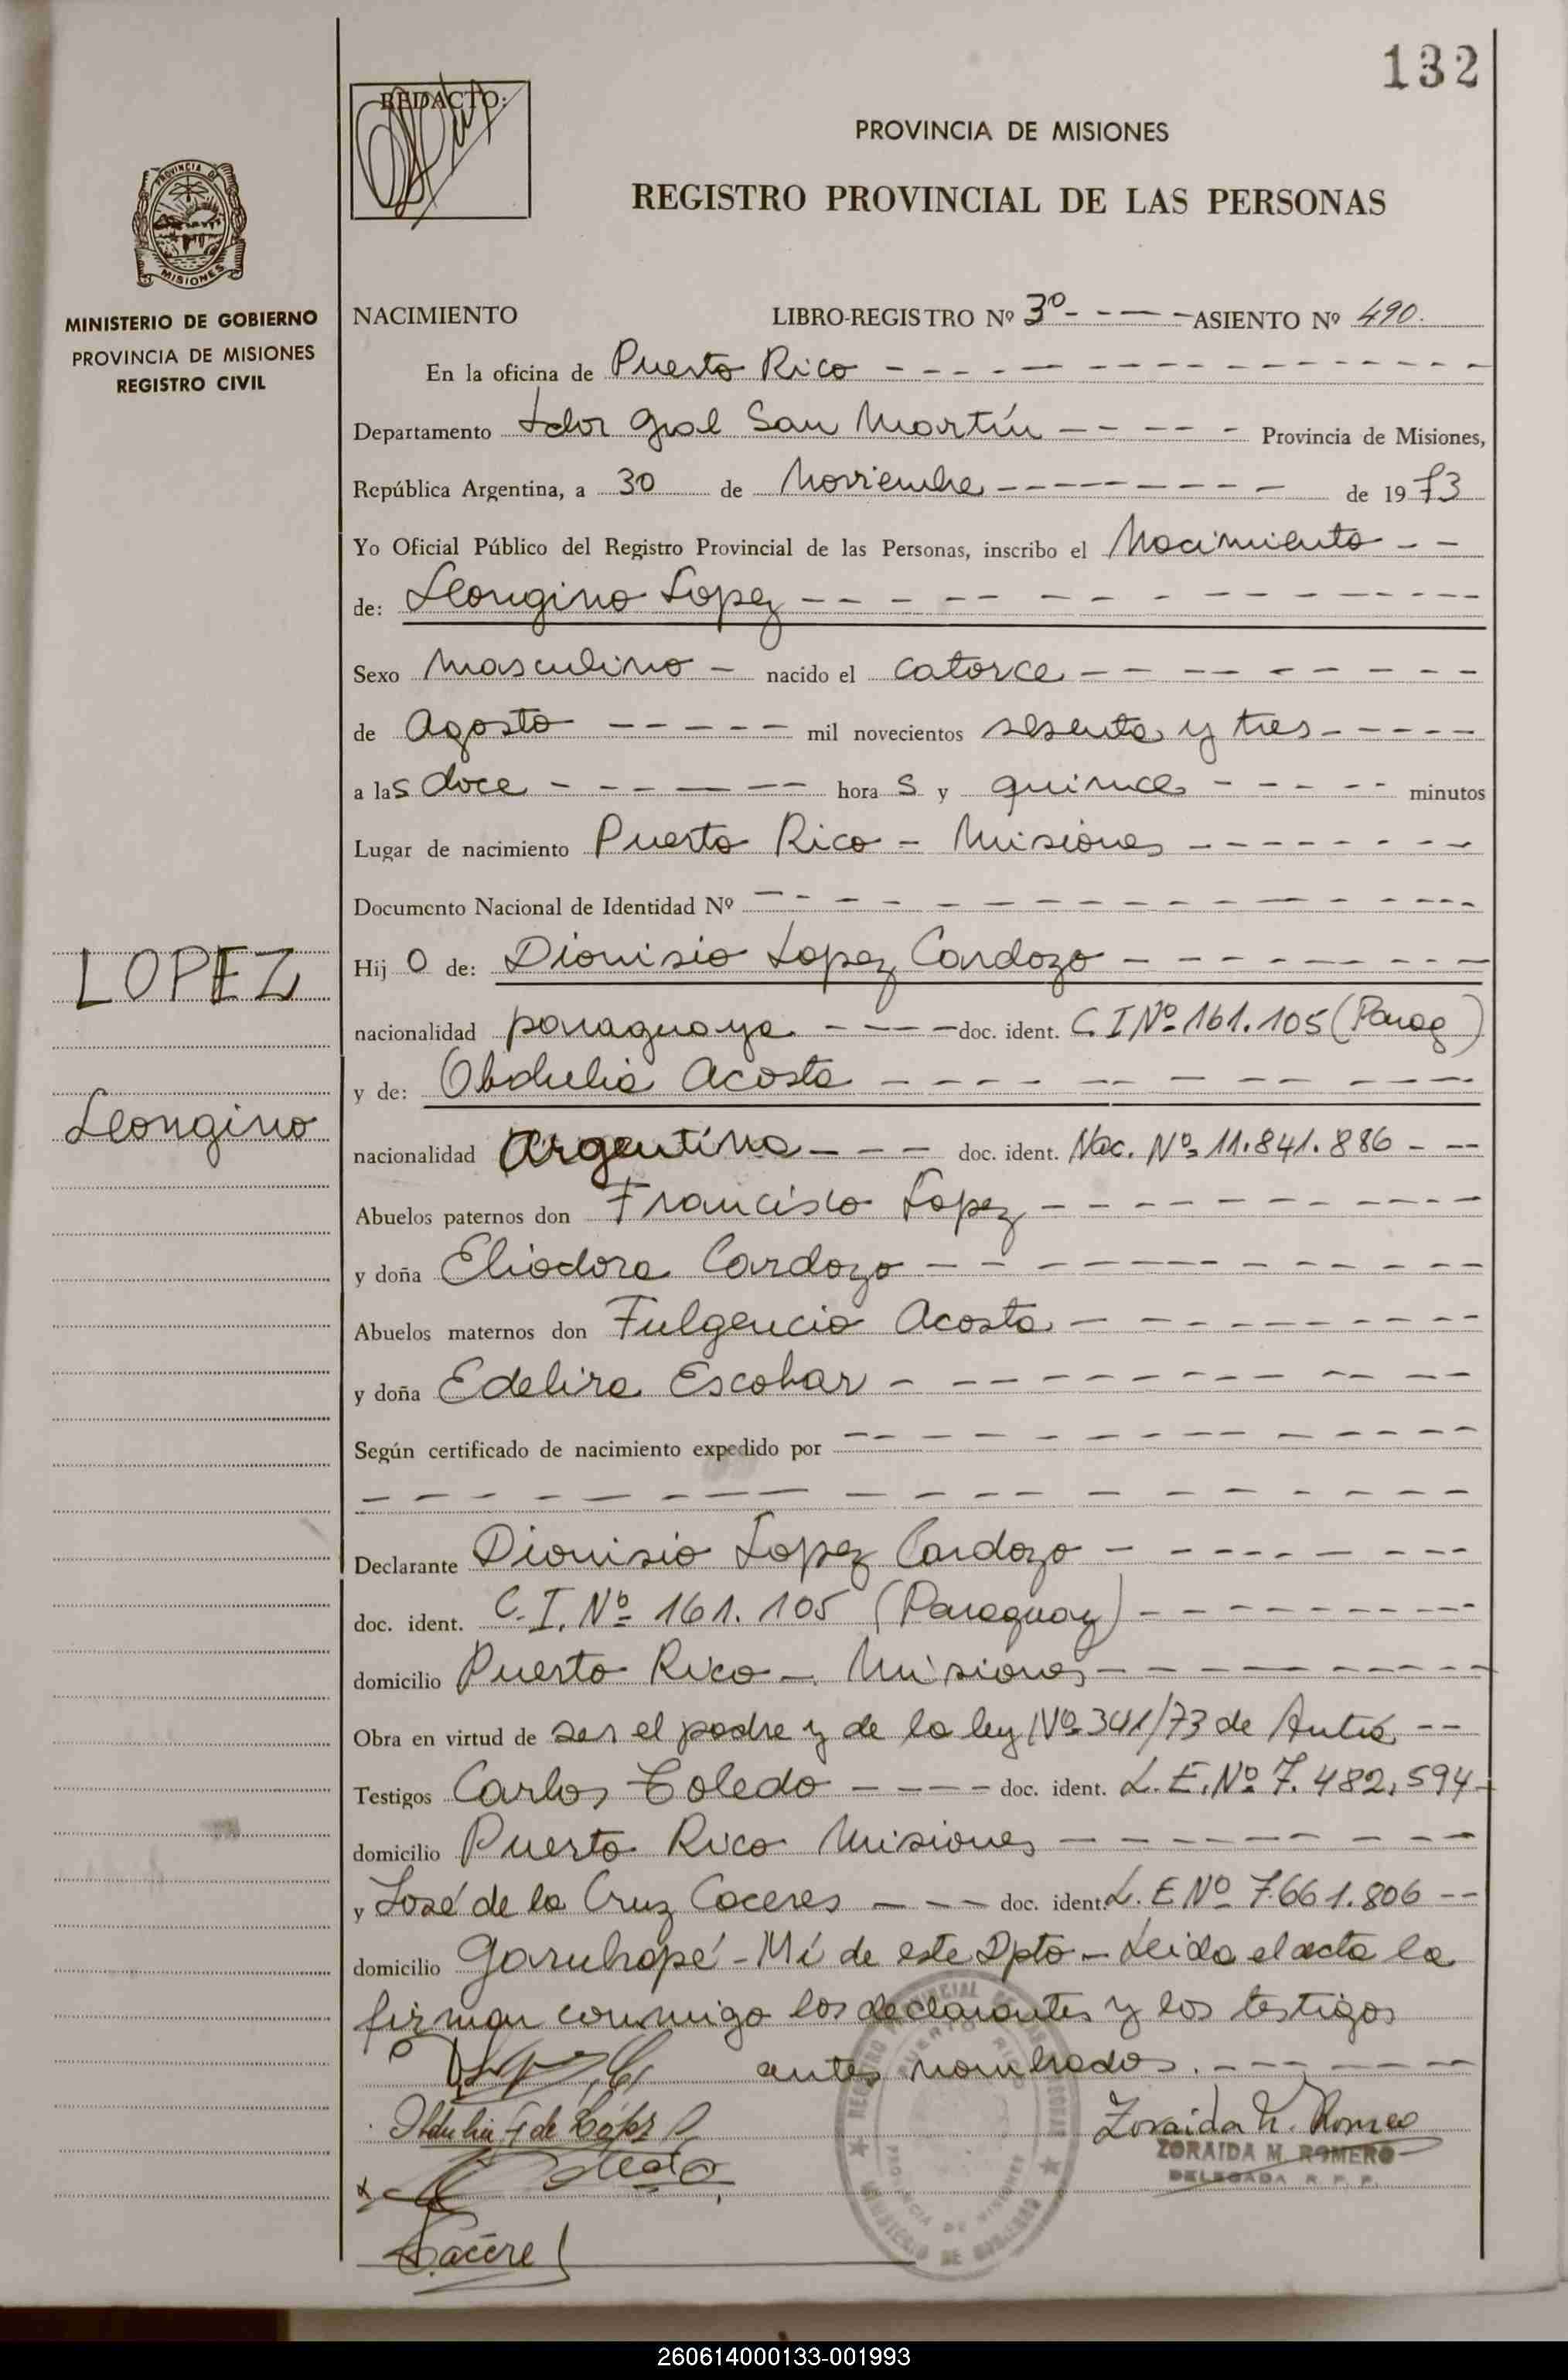 132
REDACTO:
PROVINCIA DE MISIONES
REGISTRO PROVINCIAL DE LAS PERSONAS
PROVINCIA DE
MISIONES
MINISTERIO DE GOBIERNO
PROVINCIA DE MISIONES
REGISTRO CIVIL
NACIMIENTO LIBRO-REGISTRO Nº 3º ASIENTO Nº 490.
En la oficina de Puerto Rico
Departamento Ldor Gral San Martín Provincia de Misiones,
República Argentina, a 30 de Noviembre de 1973
Yo Oficial Público del Registro Provincial de las Personas, inscribo el Nacimiento
de: Leongino Lopez
Sexo masculino nacido el catorce
de Agosto mil novecientos sesenta y tres
a las doce horas y quince minutos
Lugar de nacimiento Puerto Rico - Misiones
Documento Nacional de Identidad Nº
LOPEZ
Hijo de: Dionisio Lopez Cardozo
nacionalidad paraguaya doc. ident. C. I Nº 161.105 (Parag)
y de: Obdulia Acosta
Leongino
nacionalidad Argentina doc. ident. Nac. Nº 11.841.886
Abuelos paternos don Francisco Lopez
y doña Eliodora Cardozo
Abuelos maternos don Fulgencio Acosta
y doña Edelira Escobar
Según certificado de nacimiento expedido por
Declarante Dionisio Lopez Cardozo
doc. ident. C. I. Nº 161.105 (Paraguay)
domicilio Puerto Rico - Misiones
Obra en virtud de ser el padre y de la ley Nº 341/73 de Antic
Testigos Carlos Toledo doc. ident. L. E. Nº 7.482,594
domicilio Puerto Rico Misiones
y José de la Cruz Caceres doc. ident. L. E Nº 7.661.806
domicilio Garuhapé - Mí de este Dpto - Leida el acta la
firman conmigo los declarantes y los testigos
antes nombrados.
Zoraida M. Romero
ZORAIDA M. ROMERO
DELEGADA R. P. P.
PUERTO RICO
PROVINCIA DE MISIONES
MINISTERIO DE GOBIERNO
Cacere
260614000133-001993